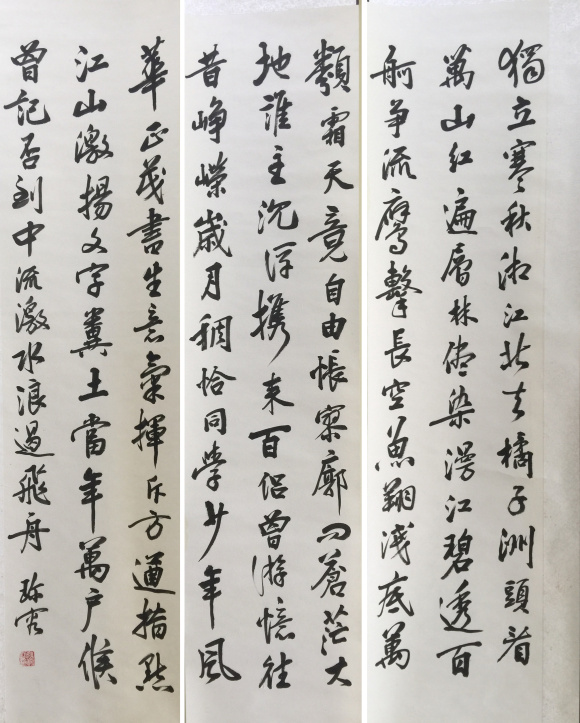 獨立寒秋湘江北去橘子洲頭看
萬山紅遍層林盡染漫江碧透百
舸爭流鷹擊長空魚翔淺底萬
類霜天竟自由悵寥廓問蒼茫大
地誰主沉浮攜來百侶曾游憶往
昔崢嶸歲月稠恰同學少年風
華正茂書生意氣揮斥方遒指點
江山激揚文字糞土當年萬户侯
曾記否到中流激水浪遏飛舟